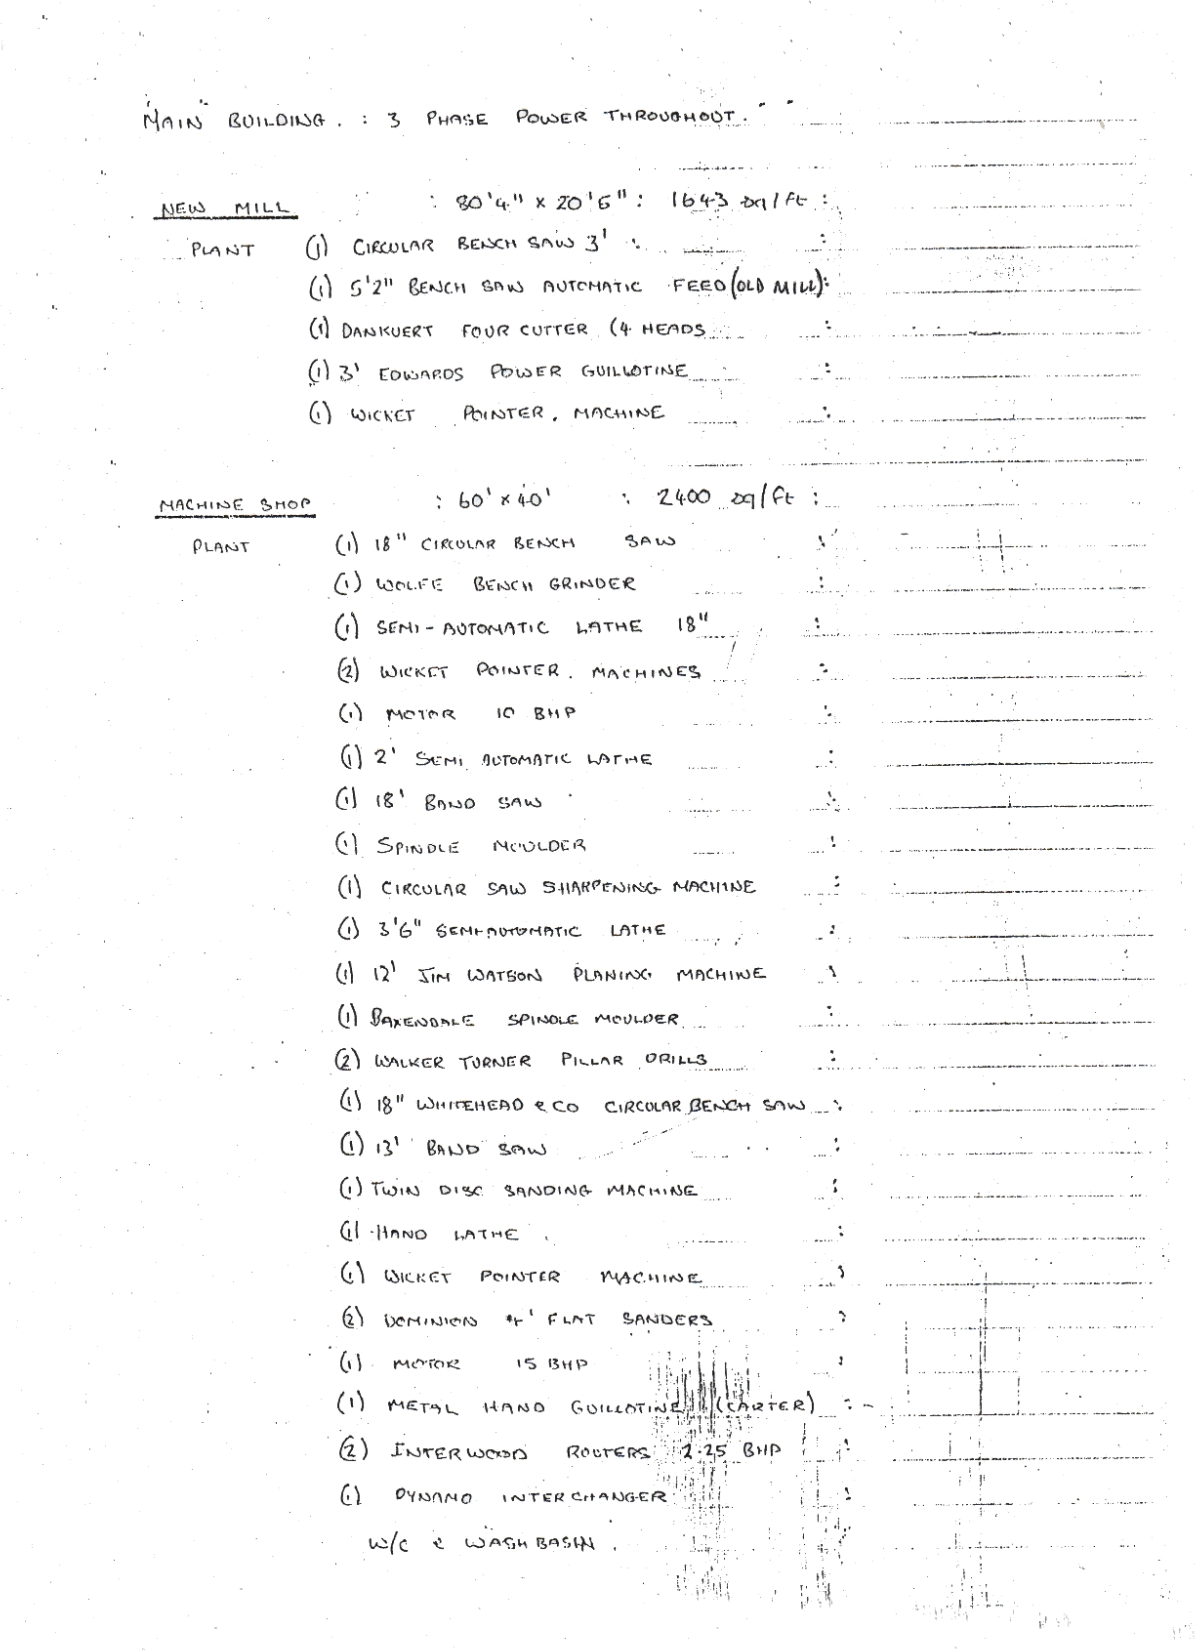 MAIN BUILDING. : 3 PHASE POWER THROUGHOUT.
NEW MILL : 80'4" x 20'6" : 1643 sq/ft :
PLANT (1) CIRCULAR BENCH SAW 3' :
(1) 5'2" BENCH SAW AUTOMATIC FEED (OLD MILL):
(1) DANKUERT FOUR CUTTER (4 HEADS :
(1) 3' EDWARDS POWER GUILLOTINE :
(1) WICKET POINTER. MACHINE :
MACHINE SHOP : 60' x 40' : 2400 sq/ft :
PLANT (1) 18" CIRCULAR BENCH SAW :
(1) WOLFE BENCH GRINDER :
(1) SEMI-AUTOMATIC LATHE 18" :
(2) WICKET POINTER. MACHINES :
(1) MOTOR 10 BHP :
(1) 2' SEMI AUTOMATIC LATHE :
(1) 18' BAND SAW :
(1) SPINDLE MOULDER :
(1) CIRCULAR SAW SHARPENING MACHINE :
(1) 3'6" SEMI-AUTOMATIC LATHE :
(1) 12' JIM WATSON PLANING MACHINE :
(1) BAXENDALE SPINDLE MOULDER :
(2) WALKER TURNER PILLAR DRILLS :
(1) 18" WHITEHEAD & CO CIRCULAR BENCH SAW :
(1) 13' BAND SAW :
(1) TWIN DISC SANDING MACHINE :
(1) HAND LATHE . :
(1) WICKET POINTER MACHINE :
(2) DOMINION FLAT SANDERS :
(1) MOTOR 15 BHP :
(1) METAL HAND GUILLOTINE (CARTER) :
(2) INTERWOOD ROUTERS 2.25 BHP :
(1) DYNAMO INTERCHANGER :
W/C & WASHBASIN.